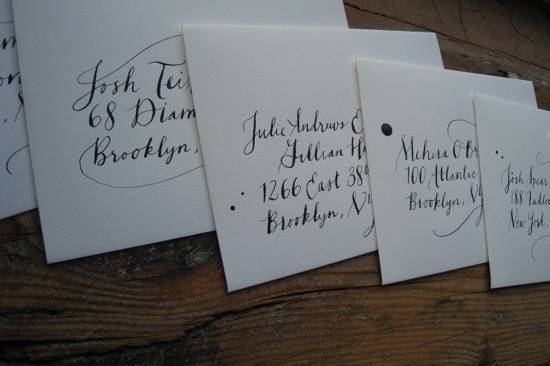 Josh
68 Diam
Brooklyn,
Julie Andrews
Gillian
1266 East 38
Brooklyn, NY
Mehera O'Br
100 Atlantic
Brooklyn,
Josh Spear
188
New York,